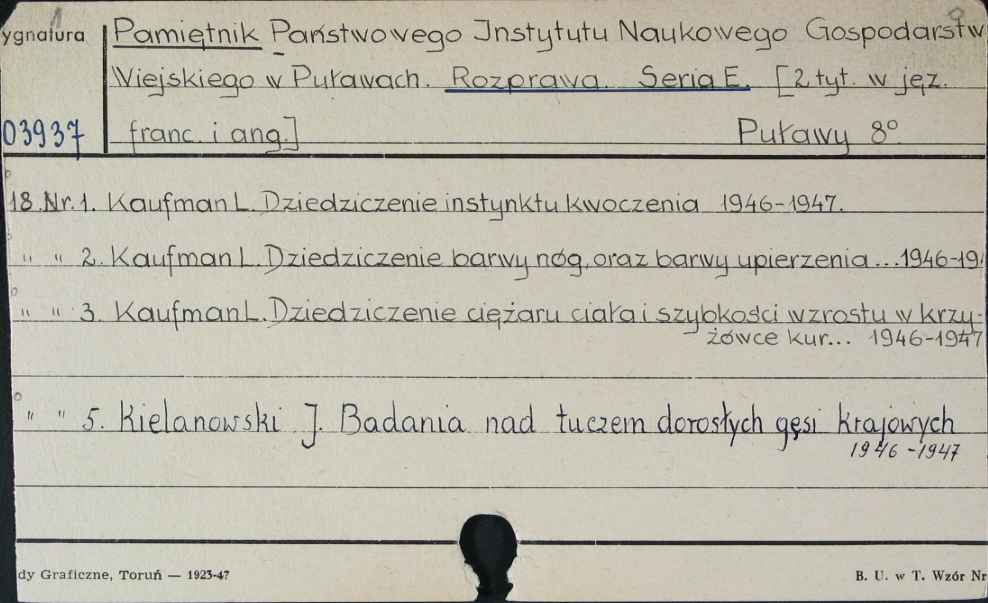 ygnatura Pamiętnik Państwowego Instytutu Naukowego Gospodarstw
Wiejskiego w Puławach. Rozprawa. Seria E. [2 tyt. w jęz.
03937 franc. i ang.] Puławy 8°
18. Nr. 1. Kaufman L. Dziedziczenie instynktu kwoczenia 1946-1947.
" " 2. Kaufman L. Dziedziczenie barwy nóg, oraz barwy upierzenia ... 1946-19
" " 3. Kaufman L. Dziedziczenie ciężaru ciała i szybkości wzrostu w krzy-
żówce kur... 1946-1947
" " 5. Kielanowski J. Badania nad tuczem dorosłych gęsi krajowych
1946-1947
dy Graficzne, Toruń — 1923-47 B. U. w T. Wzór Nr